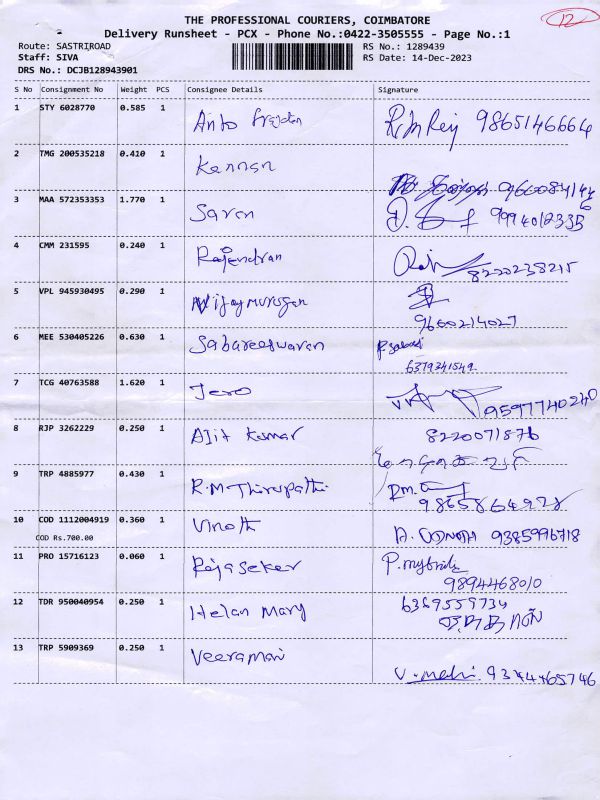 12
THE PROFESSIONAL COURIERS, COIMBATORE
Delivery Runsheet - PCX - Phone No.:0422-3505555 - Page No.:1
Route: SASTRIROAD RS No.: 1289439
Staff: SIVA RS Date: 14-Dec-2023
DRS No.: DCJB128943901
S No Consignment No Weight PCS Consignee Details Signature
1 STY 6028770 0.585 1 Anto 9865146664
2 TMG 200535218 0.410 1 Kannan
3 MAA 572353353 1.770 1 Saron 9994012335
4 CMM 231595 0.240 1 Rajendran 8220238215
5 VPL 945930495 0.290 1 Vijay murugan
9600214027
6 MEE 530405226 0.630 1 Sabareeswaran
6379341549
7 TCG 40763588 1.620 1 Jero 9597740240
8 RJP 3262229 0.250 1 Ajit Kumar 8220071876
9 TRP 4885977 0.430 1 R.M-Thirupathi Rm.
9865864928
10 COD 1112004919 0.360 1 Vinoth 9385996718
COD Rs.700.00
11 PRO 15716123 0.060 1 Rajasekar
9894468010
12 TDR 950040954 0.250 1 Helan Mary 6369559734
13 TRP 5909369 0.250 1 Veeramani
9344465746